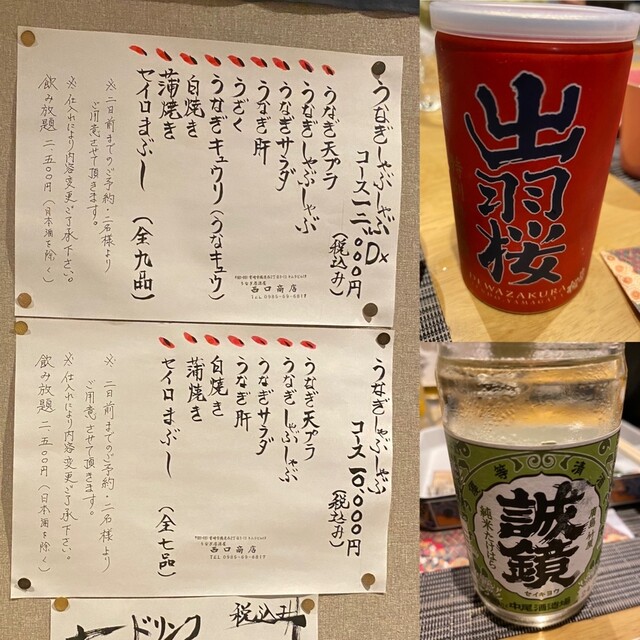 うなぎしゃぶしゃぶDx
コース一二、〇〇〇円
(税込み)
うなぎ天プラ
うなぎしゃぶしゃぶ
うなぎサラダ
うなぎ肝
うざく
うなぎキュウリ(うなキュウ)
白焼き
蒲焼き
セイロまぶし
(全九品)
※二日前までのご予約・二名様より
ご用意させて頂きます。
※仕入れにより内容変更ご了承下さい。
飲み放題 二、五〇〇円(日本酒を除く)
西口商店
TEL 0985-69-6817
うなぎしゃぶしゃぶ
コース一〇、〇〇〇円
(税込み)
うなぎ天プラ
うなぎしゃぶしゃぶ
うなぎサラダ
うなぎ肝
白焼き
蒲焼き
セイロまぶし
(全七品)
※二日前までのご予約・二名様より
ご用意させて頂きます。
※仕入れにより内容変更ご了承下さい。
飲み放題 二、五〇〇円(日本酒を除く)
西口商店
TEL 0985-69-6817
ドリンク
税込み
出羽桜
DEWAZAKURA
清酒
誠鏡
純米たけはら
セイキョウ
中尾醸造